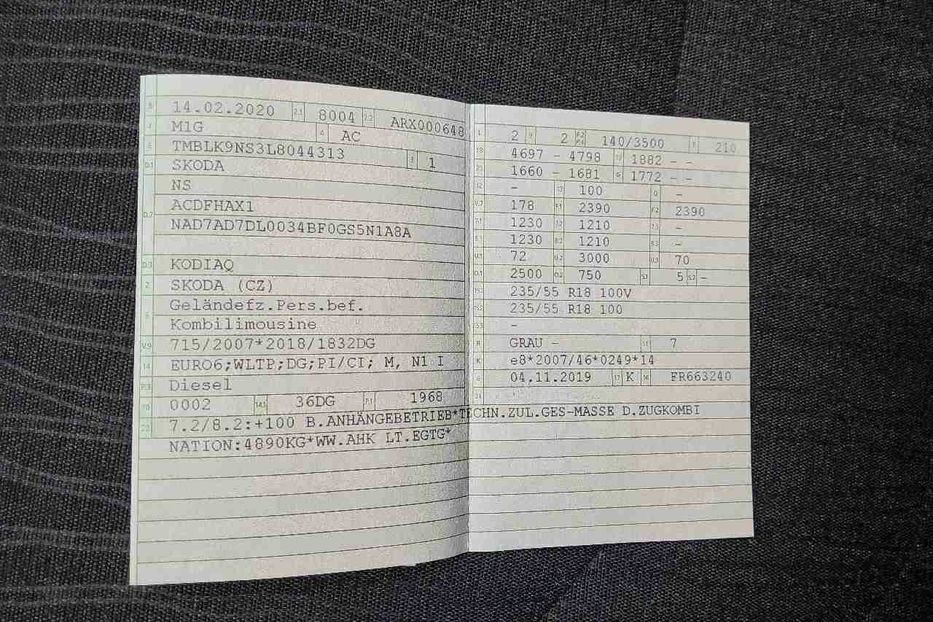 14.02.2020 2.1 8004 2.2 ARX000648
M1G 4 AC
TMBLK9NS3L8044313 3 1
D.1 SKODA
NS
D.2 ACDFHAX1
NAD7AD7DL0034BF0GS5N1A8A
D.3 KODIAQ
2 SKODA (CZ)
5 Geländefz.Pers.bef.
Kombilimousine
V.9 715/2007*2018/1832DG
14 EURO6;WLTP;DG;PI/CI; M, N1 I
P.3 Diesel
10 0002 14.1 36DG P.1 1968
22 7.2/8.2:+100 B.ANHÄNGEBETRIEB*TECHN.ZUL.GES-MASSE D.ZUGKOMBI
NATION:4890KG*WW.AHK LT.EGTG*
L 2 9 2 P.2 P.4 140/3500 T 210
18 4697 - 4798 19 1882 - -
20 1660 - 1681 G 1772 - -
12 - 13 100 Q -
V.7 178 F.1 2390 F.2 2390
7.1 1230 7.2 1210 7.3 -
8.1 1230 8.2 1210 8.3 -
U.1 72 U.2 3000 U.3 70
O.1 2500 O.2 750 S.1 5 S.2 -
15.1 235/55 R18 100V
15.2 235/55 R18 100
15.3 -
R GRAU - 11 7
K e8*2007/46*0249*14
6 04.11.2019 17 K 16 FR663240
21